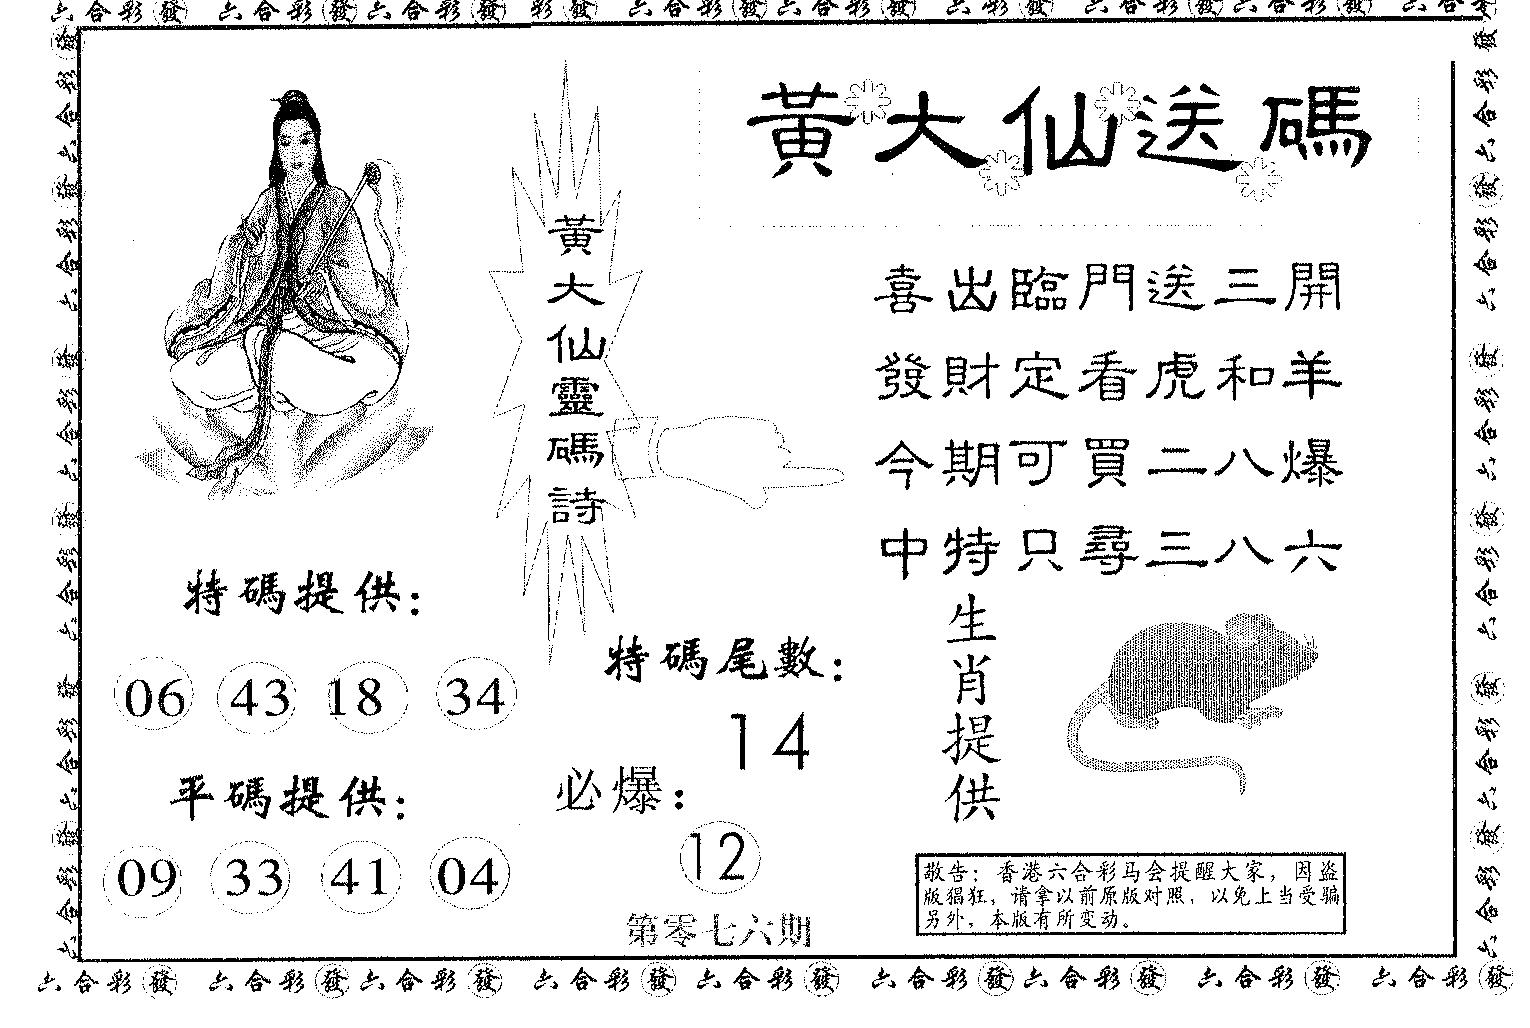 六合彩發 六合彩發六合彩發 彩發 六合彩發六合彩發 六合彩發 六合彩發六合彩發 六合彩
黃大仙送碼
黃大仙靈碼詩
喜出臨門送三開
發財定看虎和羊
今期可買二八爆
中特只尋三八六
特碼提供:
06 43 18 34
平碼提供:
09 33 41 04
特碼尾數:
14
必爆:
12
第零七六期
生肖提供
敬告:香港六合彩马会提醒大家,因盗
版猖狂,请拿以前原版对照,以免上当受骗
另外,本版有所变动。
六合彩發 六合彩發六合彩發 六合彩發 六合彩發 六合彩發六合彩發 六合彩發 六合彩發